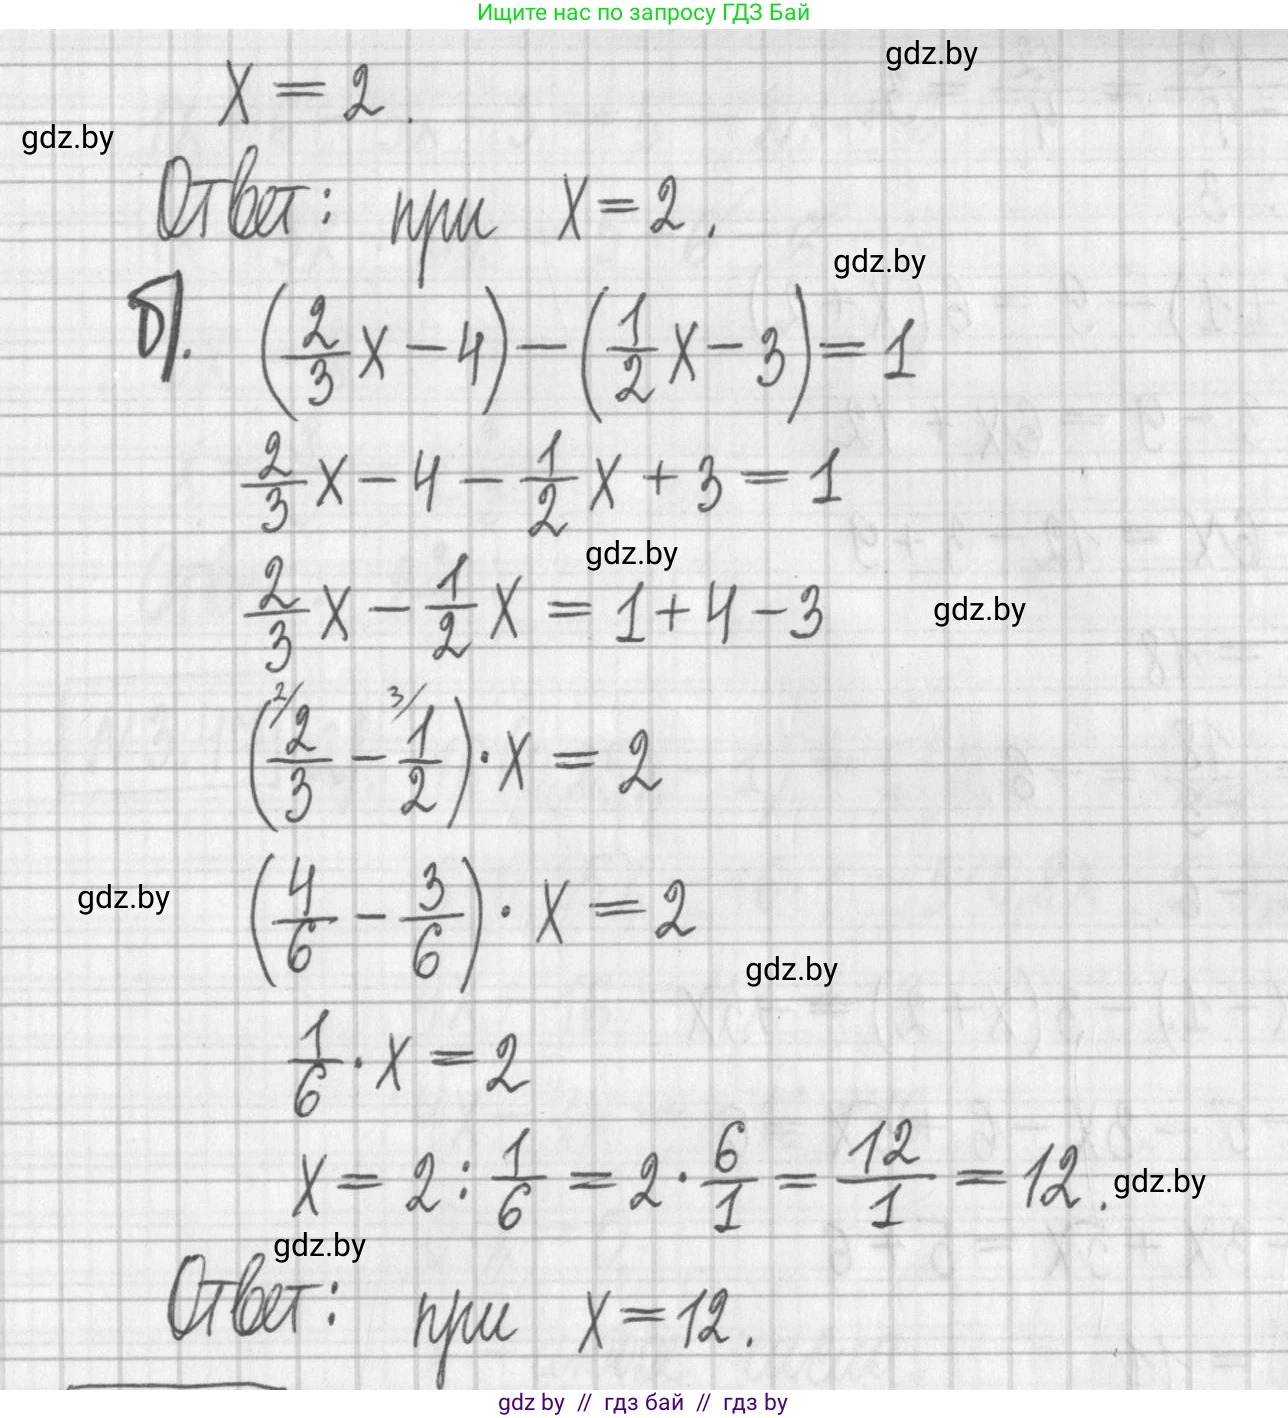 Ищите нас по запросу ГДЗ Бай
gdz.by
x = 2.
gdz.by
Ответ: при x = 2.
gdz.by
б). (2/3 x - 4) - (1/2 x - 3) = 1
2/3 x - 4 - 1/2 x + 3 = 1
gdz.by
2/3 x - 1/2 x = 1 + 4 - 3
gdz.by
(2/ 2/3 - 3/ 1/2) · x = 2
gdz.by
(4/6 - 3/6) · x = 2
gdz.by
1/6 · x = 2
x = 2 : 1/6 = 2 · 6/1 = 12/1 = 12.
gdz.by
gdz.by
Ответ: при x = 12.
gdz by // гдз бай // гдз by